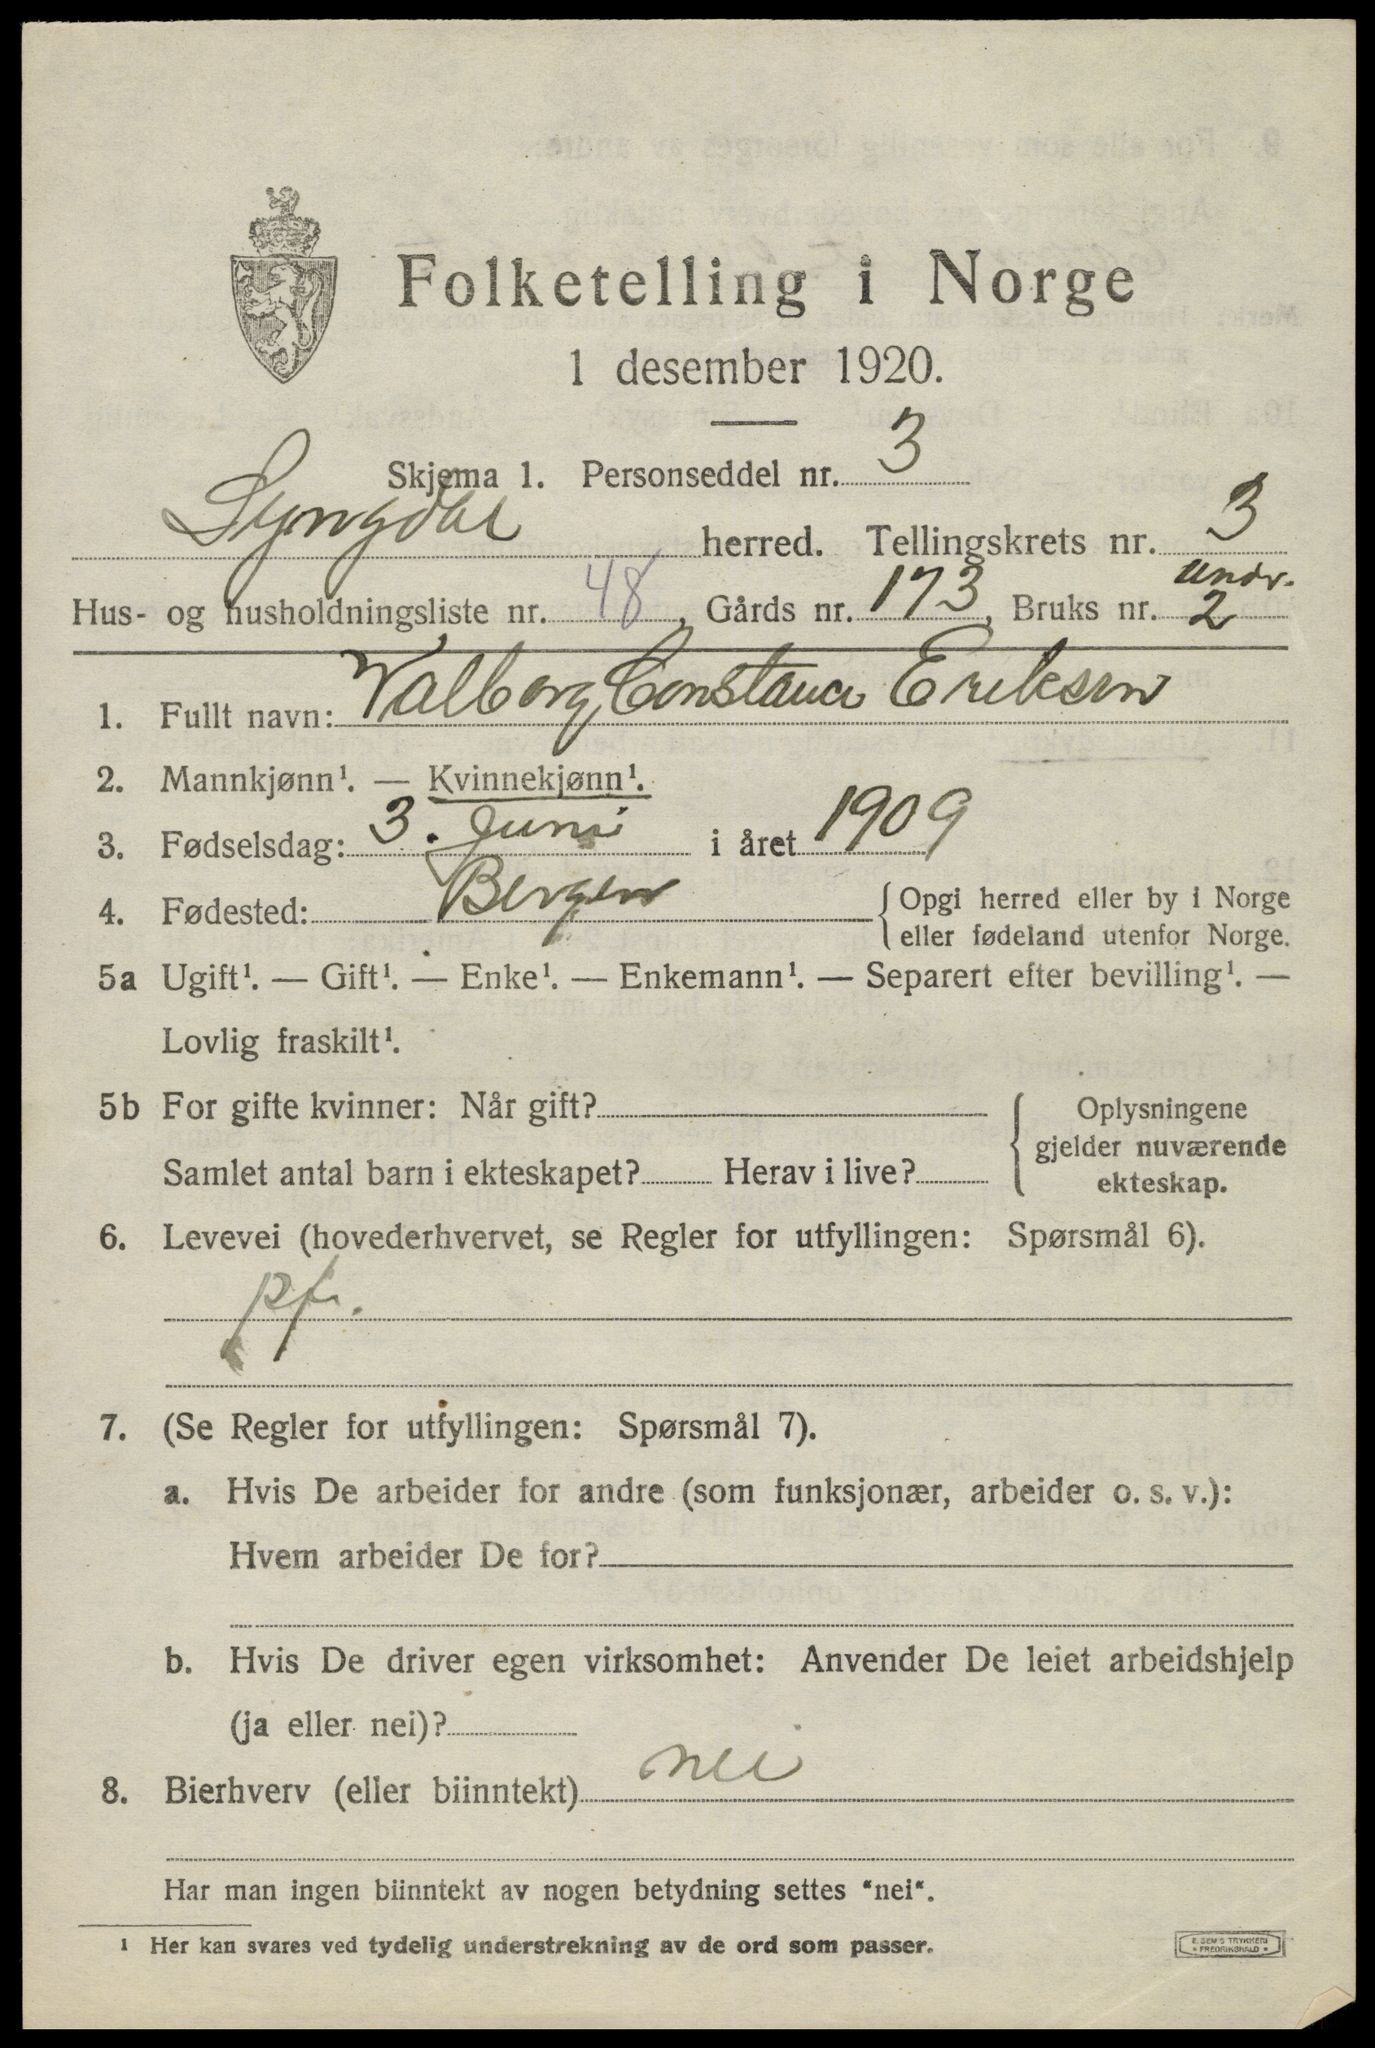 Folketelling i Norge
1 desember 1920.
Skjema 1. Personseddel nr. 3
Lyngdal herred. Tellingskrets nr. 3
Hus- og husholdningsliste nr. 48, Gårds nr. 173, Bruks nr. undr. 2
1. Fullt navn: Valborg Constance Eriksen
2. Mannkjønn¹. — Kvinnekjønn¹.
3. Fødselsdag: 3. Juni i året 1909
4. Fødested: Bergen { Opgi herred eller by i Norge
eller fødeland utenfor Norge.
5a Ugift¹. — Gift¹. — Enke¹. — Enkemann¹. — Separert efter bevilling¹. —
Lovlig fraskilt¹.
5b For gifte kvinner: Når gift?
Samlet antal barn i ekteskapet? Herav i live?
{ Oplysningene
gjelder nuværende
ekteskap.
6. Levevei (hovederhvervet, se Regler for utfyllingen: Spørsmål 6).
pf.
7. (Se Regler for utfyllingen: Spørsmål 7).
a. Hvis De arbeider for andre (som funksjonær, arbeider o. s. v.):
Hvem arbeider De for?
b. Hvis De driver egen virksomhet: Anvender De leiet arbeidshjelp
(ja eller nei)?
8. Bierhverv (eller biinntekt) nei
Har man ingen biinntekt av nogen betydning settes "nei".
¹ Her kan svares ved tydelig understrekning av de ord som passer.
E. SEM'S TRYKKERI
* FREDRIKSHALD *